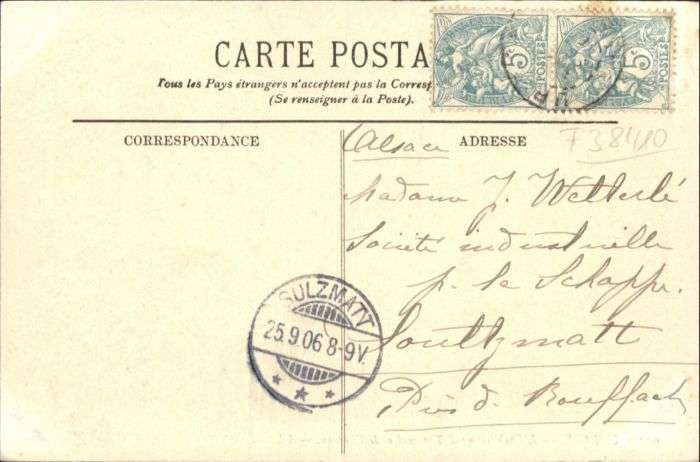 CARTE POSTA
Tous les Pays étrangers n'acceptent pas la Corresp
(Se renseigner à la Poste).
5c POSTES
5c POSTES
CORRESPONDANCE
ADRESSE
F38410
Alsace
Madame J. Wetterlé
Société industrielle
p. la Schappe.
Soultzmatt
Près d. Rouffach
SULZMATT
25.9.06 8-9V.